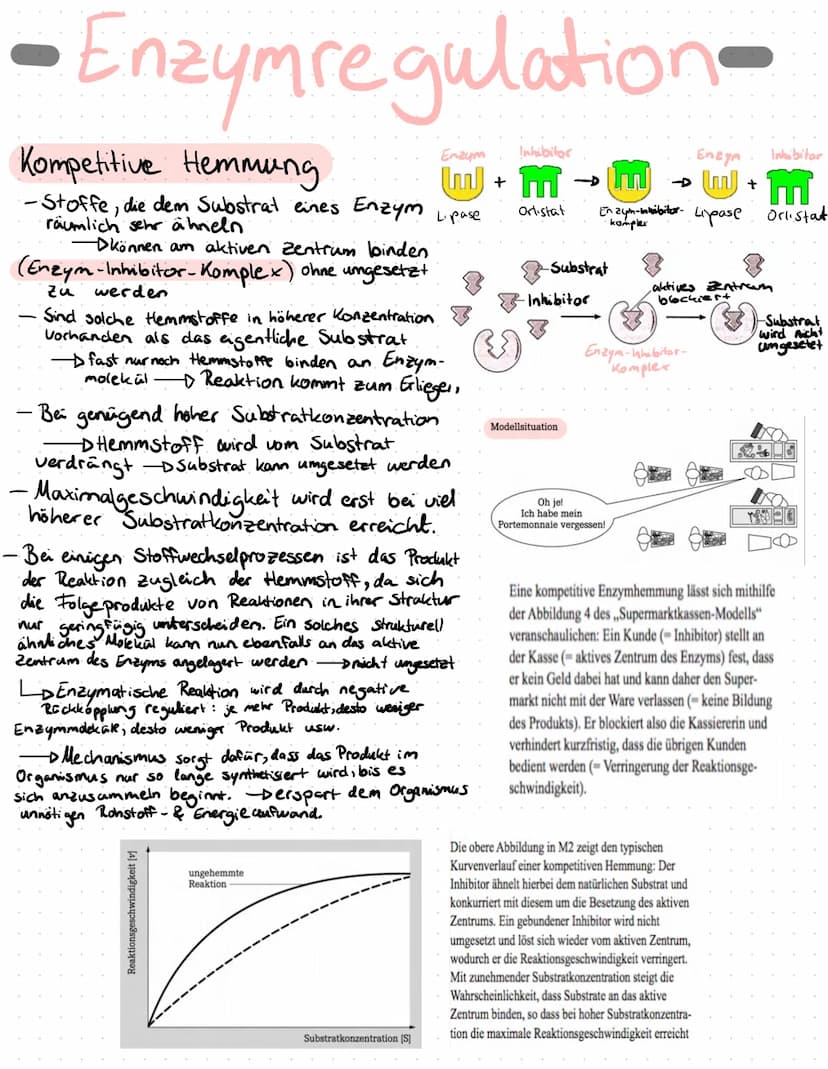 Enzymregulation
Kompetitive Hemmung
- Stoffe, die dem Substrat eines Enzym
räumlich sehr ähneln
→ können am aktiven Zentrum binden
(Enzym-Inhibitor-Komplex) ohne umgesetzt
zu werden
- Sind solche Hemmstoffe in höherer Konzentration
vorhanden als das eigentliche Substrat
→ fast nur noch Hemmstoffe binden an Enzym-
molekül → Reaktion kommt zum Erliegen
- Bei genügend hoher Substratkonzentration
→ Hemmstoff wird vom Substrat
verdrängt → Substrat kann umgesetzt werden
- Maximalgeschwindigkeit wird erst bei viel
höherer Substratkonzentration erreicht.
- Bei einigen Stoffwechselprozessen ist das Produkt
der Reaktion zugleich der Hemmstoff, da sich
die Folgeprodukte von Reaktionen in ihrer Struktur
nur geringfügig unterscheiden. Ein solches strukturell
ähnliches Molekül kann nun ebenfalls an das aktive
Zentrum des Enzyms angelagert werden → nicht umgesetzt
↳ Enzymatische Reaktion wird durch negative
Rückkopplung reguliert: je mehr Produkt, desto weniger
Enzymmoleküle, desto weniger Produkt usw.
→ Mechanismus sorgt dafür, dass das Produkt im
Organismus nur so lange synthetisiert wird, bis es
sich anzusammeln beginnt. → erspart dem Organismus
unnötigen Rohstoff- & Energieaufwand.
Enzym Inhibitor Enzym Inhibitor
+ → → +
Lipase Orlistat Enzym-Inhibitor- Lipase Orlistat
komplex
Substrat
Inhibitor
aktives Zentrum
blockiert
Substrat
wird nicht
umgesetzt
Enzym-Inhibitor-
Komplex
Modellsituation
Oh je!
Ich habe mein
Portemonnaie vergessen!
Eine kompetitive Enzymhemmung lässt sich mithilfe
der Abbildung 4 des „Supermarktkassen-Modells“
veranschaulichen: Ein Kunde (= Inhibitor) stellt an
der Kasse (= aktives Zentrum des Enzyms) fest, dass
er kein Geld dabei hat und kann daher den Super-
markt nicht mit der Ware verlassen (= keine Bildung
des Produkts). Er blockiert also die Kassiererin und
verhindert kurzfristig, dass die übrigen Kunden
bedient werden (= Verringerung der Reaktionsge-
schwindigkeit).
Reaktionsgeschwindigkeit [v]
ungehemmte
Reaktion
Substratkonzentration [S]
Die obere Abbildung in M2 zeigt den typischen
Kurvenverlauf einer kompetitiven Hemmung: Der
Inhibitor ähnelt hierbei dem natürlichen Substrat und
konkurriert mit diesem um die Besetzung des aktiven
Zentrums. Ein gebundener Inhibitor wird nicht
umgesetzt und löst sich wieder vom aktiven Zentrum,
wodurch er die Reaktionsgeschwindigkeit verringert.
Mit zunehmender Substratkonzentration steigt die
Wahrscheinlichkeit, dass Substrate an das aktive
Zentrum binden, so dass bei hoher Substratkonzentra-
tion die maximale Reaktionsgeschwindigkeit erreicht